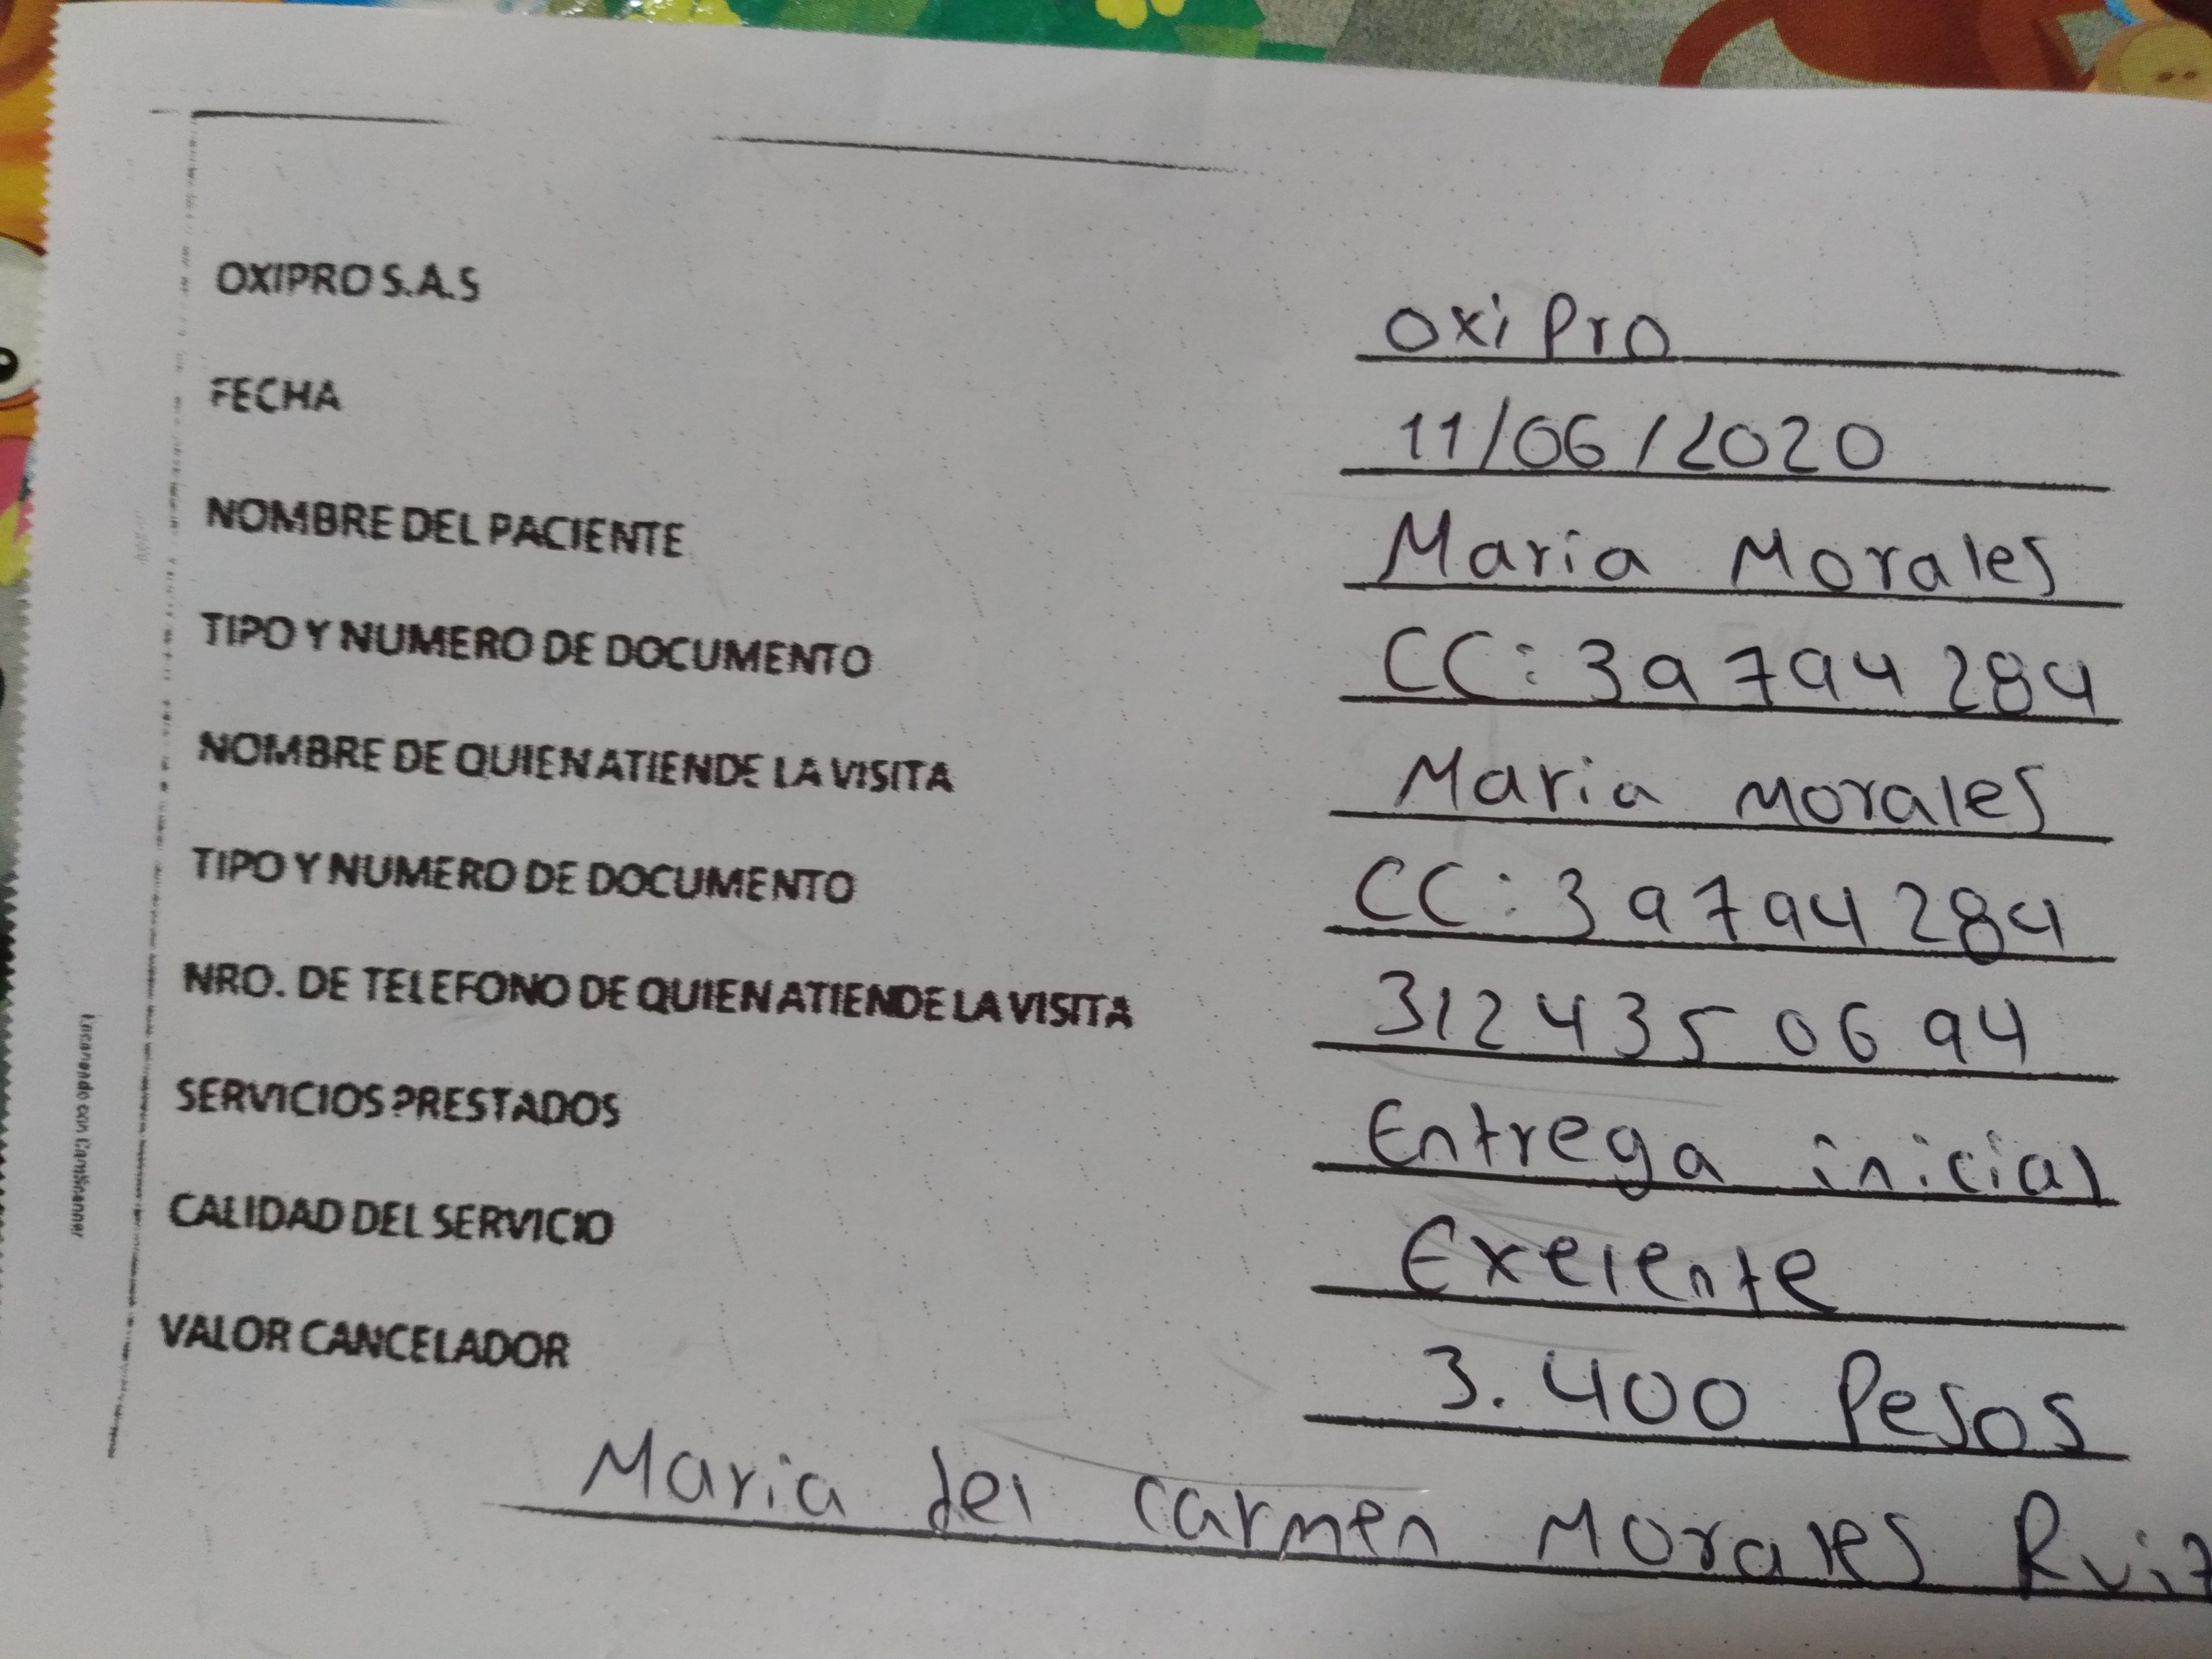 OXIPRO S.A.S oxi Pro
FECHA 11/06/2020
NOMBRE DEL PACIENTE Maria Morales
TIPO Y NUMERO DE DOCUMENTO CC: 39794284
NOMBRE DE QUIEN ATIENDE LA VISITA Maria Morales
TIPO Y NUMERO DE DOCUMENTO CC: 39794284
NRO. DE TELEFONO DE QUIEN ATIENDE LA VISITA 312435 06 94
SERVICIOS PRESTADOS Entrega inicial
CALIDAD DEL SERVICIO Exelente
VALOR CANCELADOR 3.400 Pesos
Maria del carmen Morales Ruiz
Escaneado con CamScanner